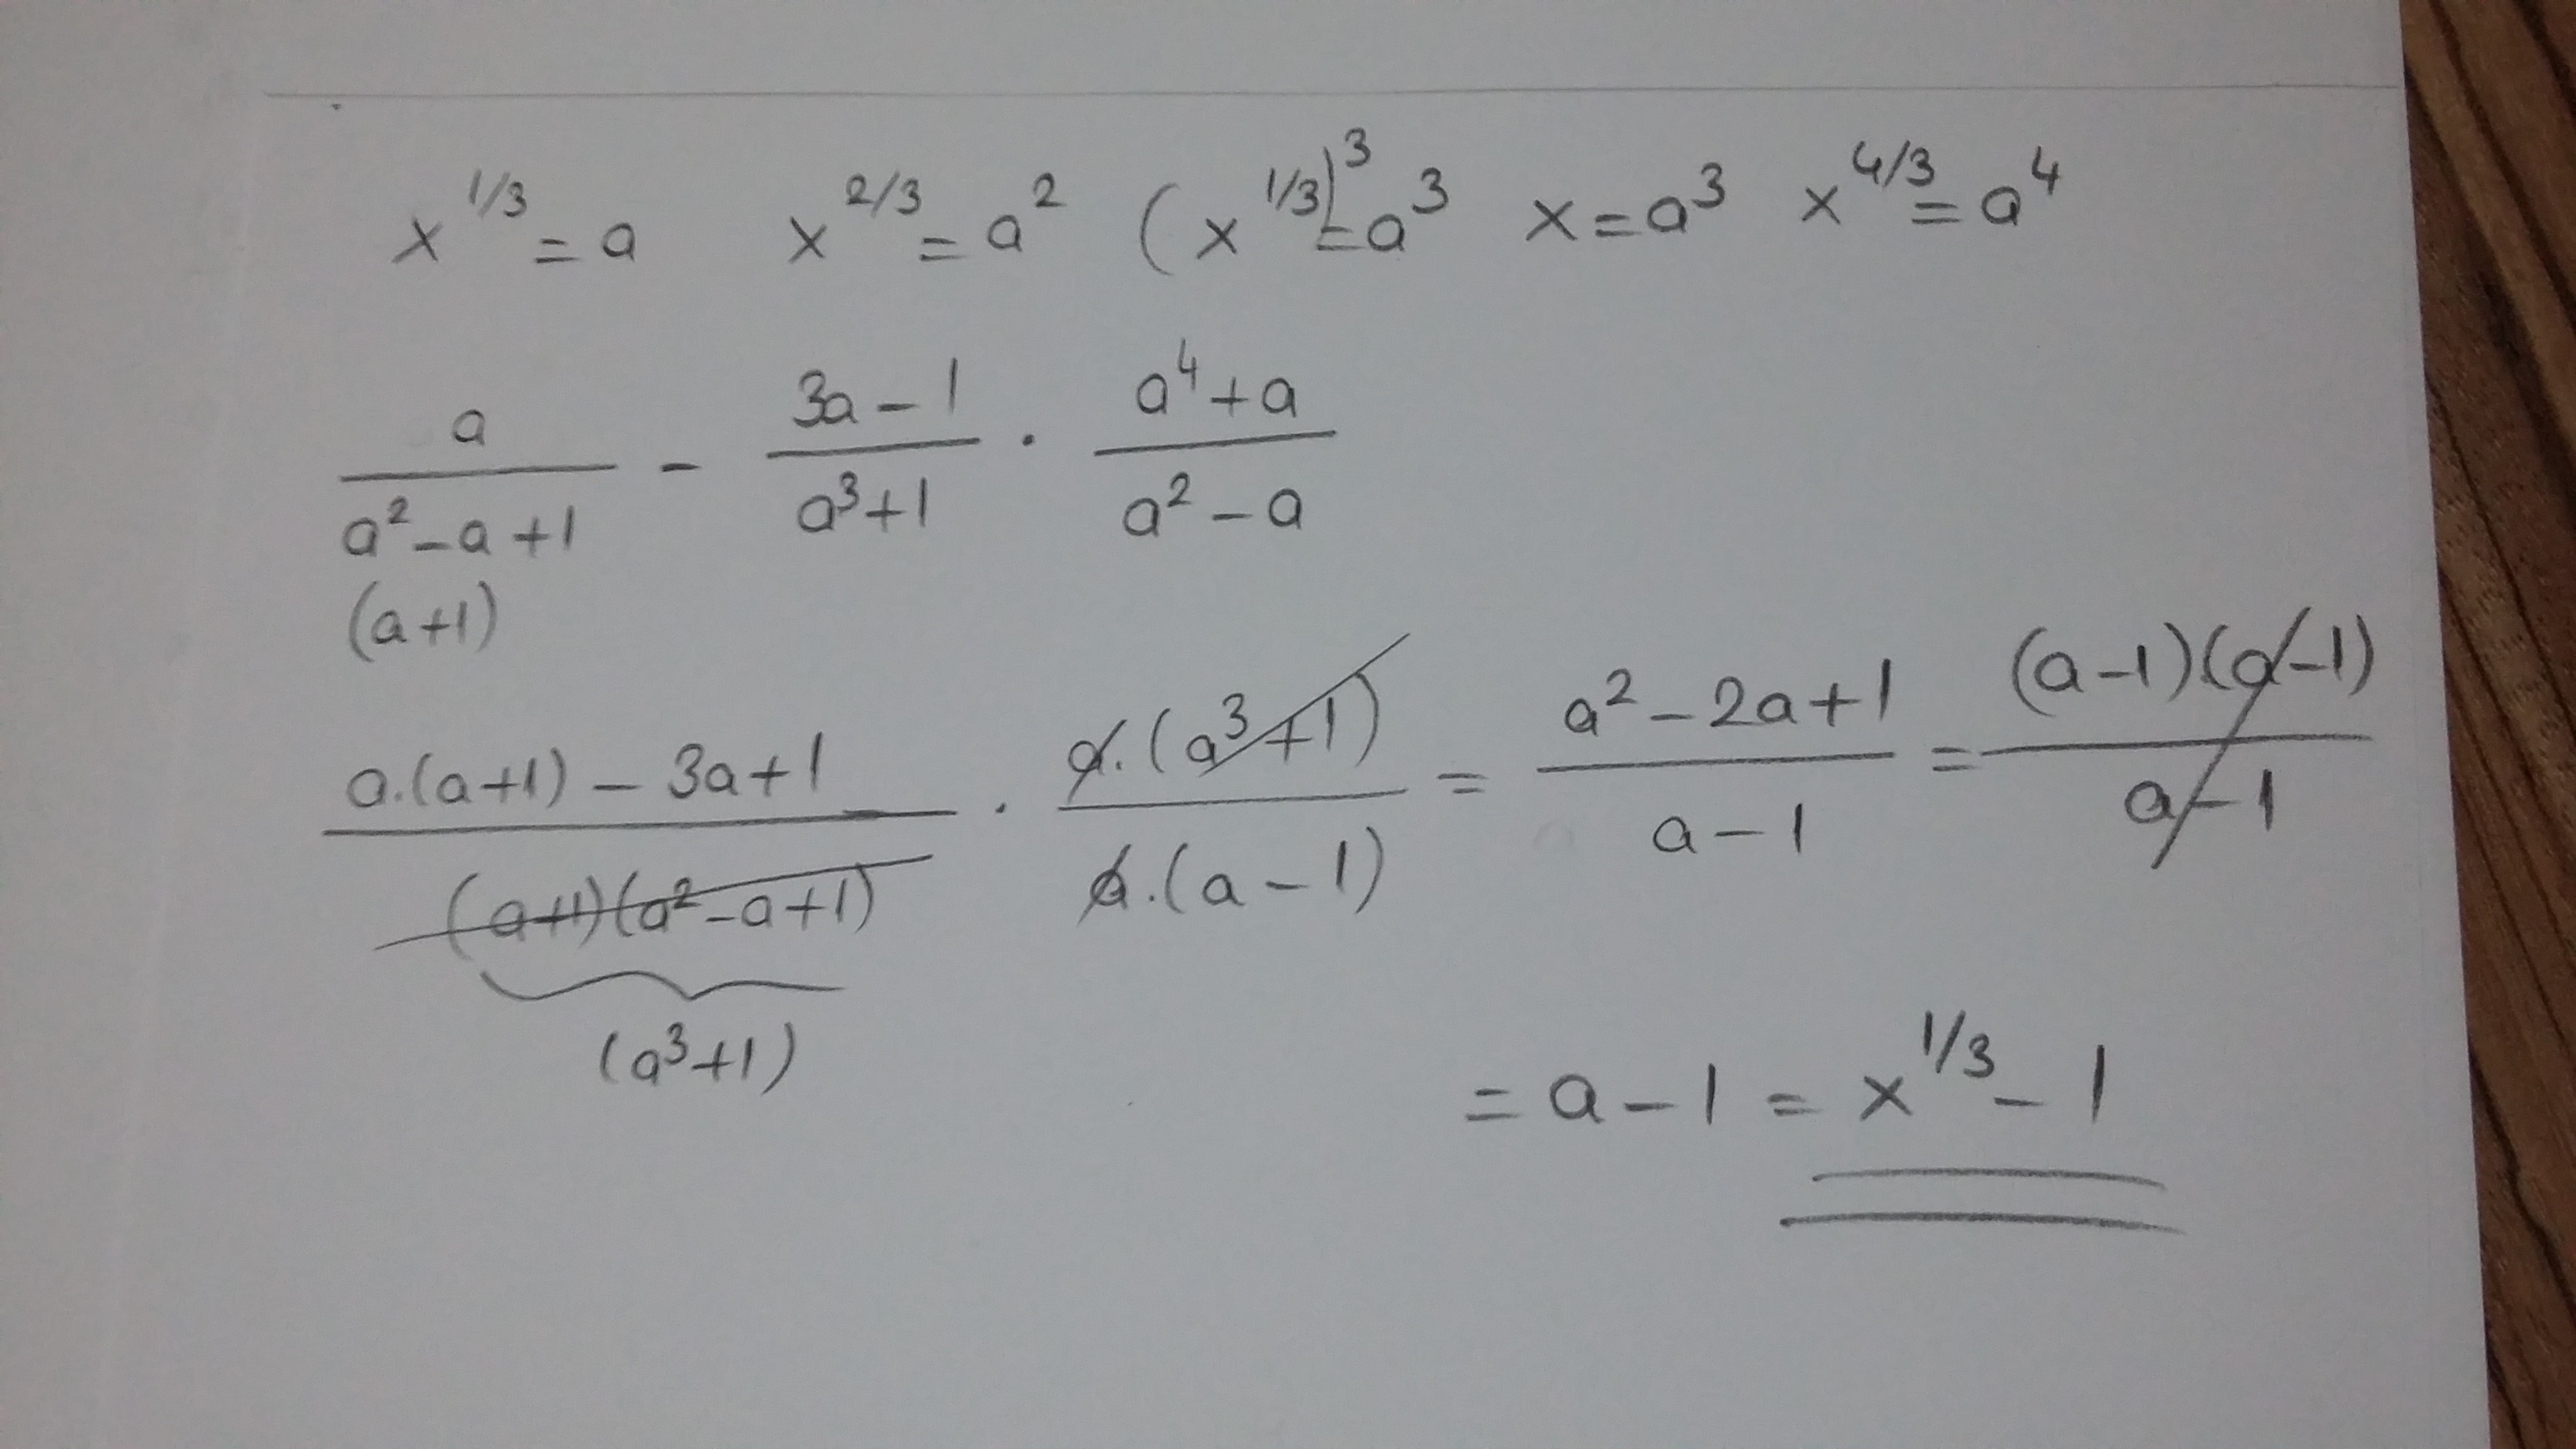 x^{1/3} = a   x^{2/3} = a^2   (x^{1/3})^3 = a^3   x = a^3   x^{4/3} = a^4
\frac{a}{a^2 - a + 1} - \frac{3a - 1}{a^3 + 1} \cdot \frac{a^4 + a}{a^2 - a}
(a+1)
\frac{a.(a+1) - 3a + 1}{(a+1)(a^2 - a + 1)} \cdot \frac{a.(a^3 + 1)}{a.(a - 1)} = \frac{a^2 - 2a + 1}{a - 1} = \frac{(a-1)(a-1)}{a-1}
(a^3 + 1)
= a - 1 = x^{1/3} - 1